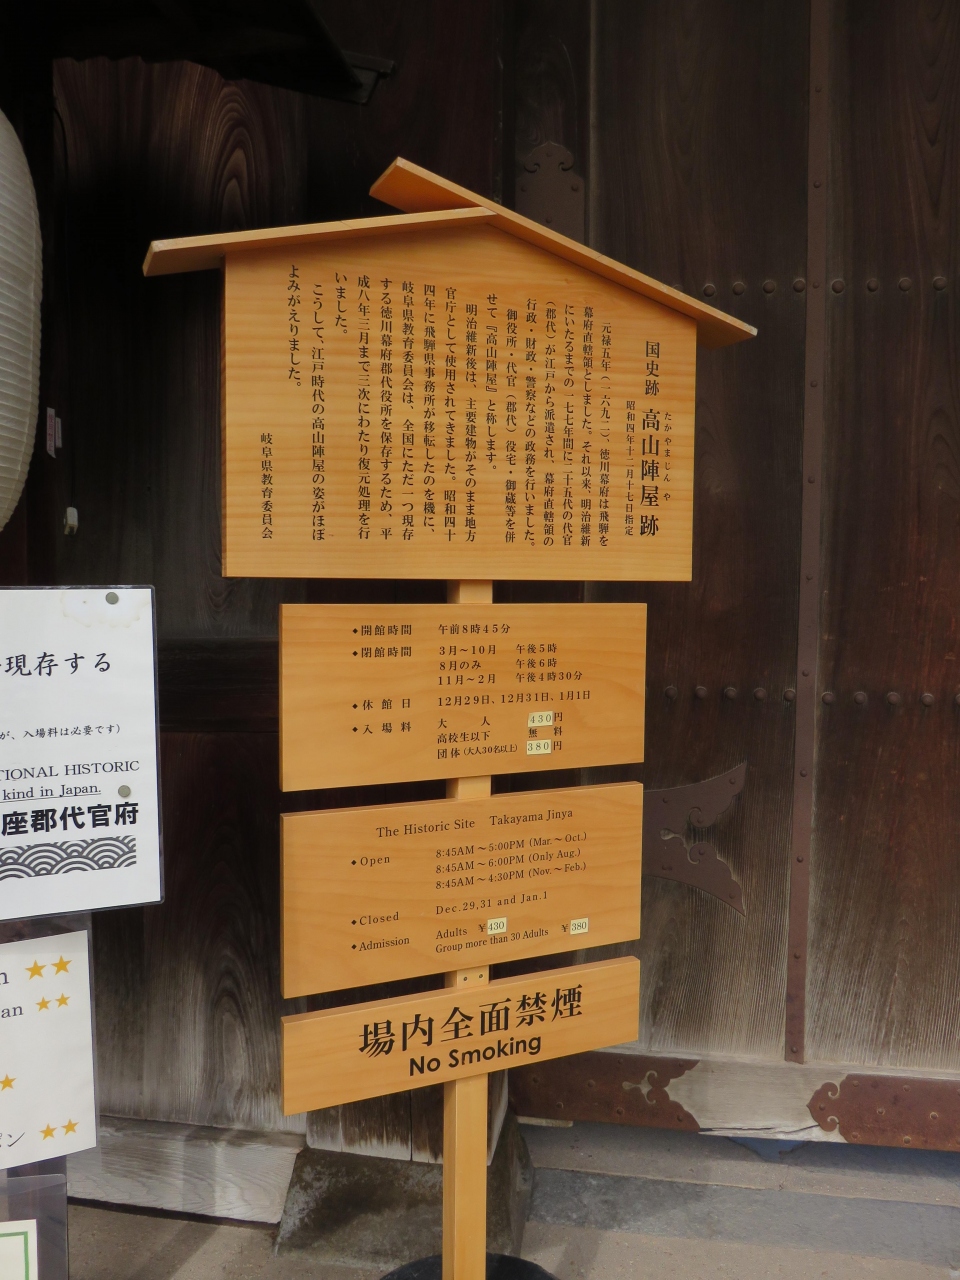 国史跡 高山陣屋跡
たかやまじんや
昭和四年十二月十七日指定
元禄五年(一六九二)、徳川幕府は飛騨を
幕府直轄領としました。それ以来、明治維新
にいたるまでの一七七年間に二十五代の代官
(郡代)が江戸から派遣され、幕府直轄領の
行政・財政・警察などの政務を行いました。
御役所・代官(郡代)役宅・御蔵等を併
せて『高山陣屋』と称します。
明治維新後は、主要建物がそのまま地方
官庁として使用されてきました。昭和四十
四年に飛騨県事務所が移転したのを機に、
岐阜県教育委員会は、全国にただ一つ現存
する徳川幕府郡代役所を保存するため、平
成八年三月まで三次にわたり復元処理を行
いました。
こうして、江戸時代の高山陣屋の姿がほぼ
よみがえりました。
岐阜県教育委員会
◆開館時間 午前8時45分
◆閉館時間 3月〜10月 午後5時
8月のみ 午後6時
11月〜2月 午後4時30分
◆休館日 12月29日、12月31日、1月1日
◆入場料 大人 430円
高校生以下 無料
団体(大人30名以上) 380円
The Historic Site Takayama Jinya
◆Open 8:45AM〜5:00PM (Mar.〜Oct.)
8:45AM〜6:00PM (Only Aug.)
8:45AM〜4:30PM (Nov.〜Feb.)
◆Closed Dec.29,31 and Jan.1
◆Admission Adults ¥430
Group more than 30 Adults ¥380
場内全面禁煙
No Smoking
現存する
が、入場料は必要です)
TIONAL HISTORIC
kind in Japan.
座郡代官府
n ★★
an ★★
★
ン ★★